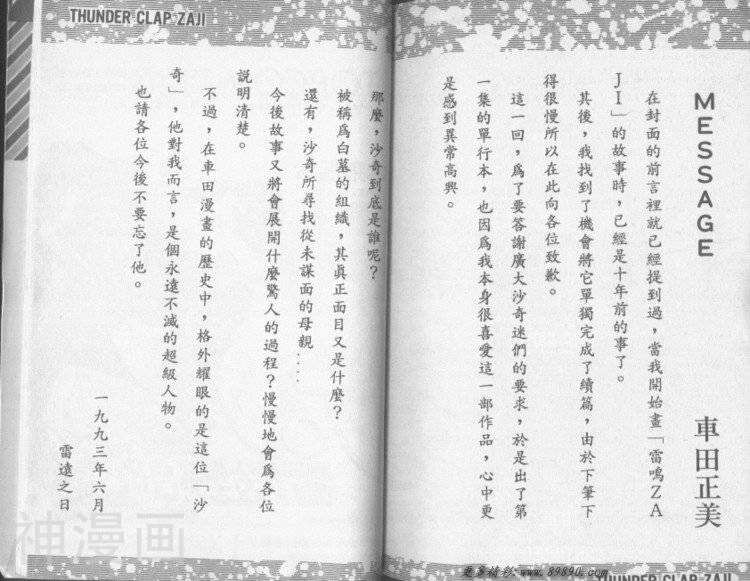 MESSAGE
車田正美
在封面的前言裡就已經提到過，當我開始畫「雷鳴ZA
JI」的故事時，已經是十年前的事了。
其後，我找到了機會將它單獨完成了續篇，由於下筆下
得很慢所以在此向各位致歉。
這一回，爲了要答謝廣大沙奇迷們的要求，於是出了第
一集的單行本，也因爲我本身很喜愛這一部作品，心中更
是感到異常高興。
THUNDER CLAP ZAJI
THUNDER CLAP ZAJI
那麼，沙奇到底是誰呢？
被稱爲白墓的組織，其眞正面目又是什麼？
還有，沙奇所尋找從未謀面的母親‥‥
今後故事又將會展開什麼驚人的過程？慢慢地會爲各位
說明清楚。
不過，在車田漫畫的歷史中，格外耀眼的是這位「沙
奇」，他對我而言，是個永遠不滅的超級人物。
也請各位今後不要忘了他。
一九九三年六月
雷遠之日
神漫画
www.89890.com